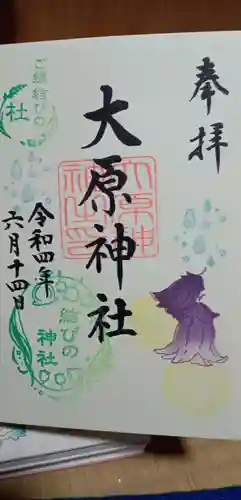 奉拝
大原神社
大原神社之印
令和四年
六月十四日
ご縁結びの
社
結びの
神社